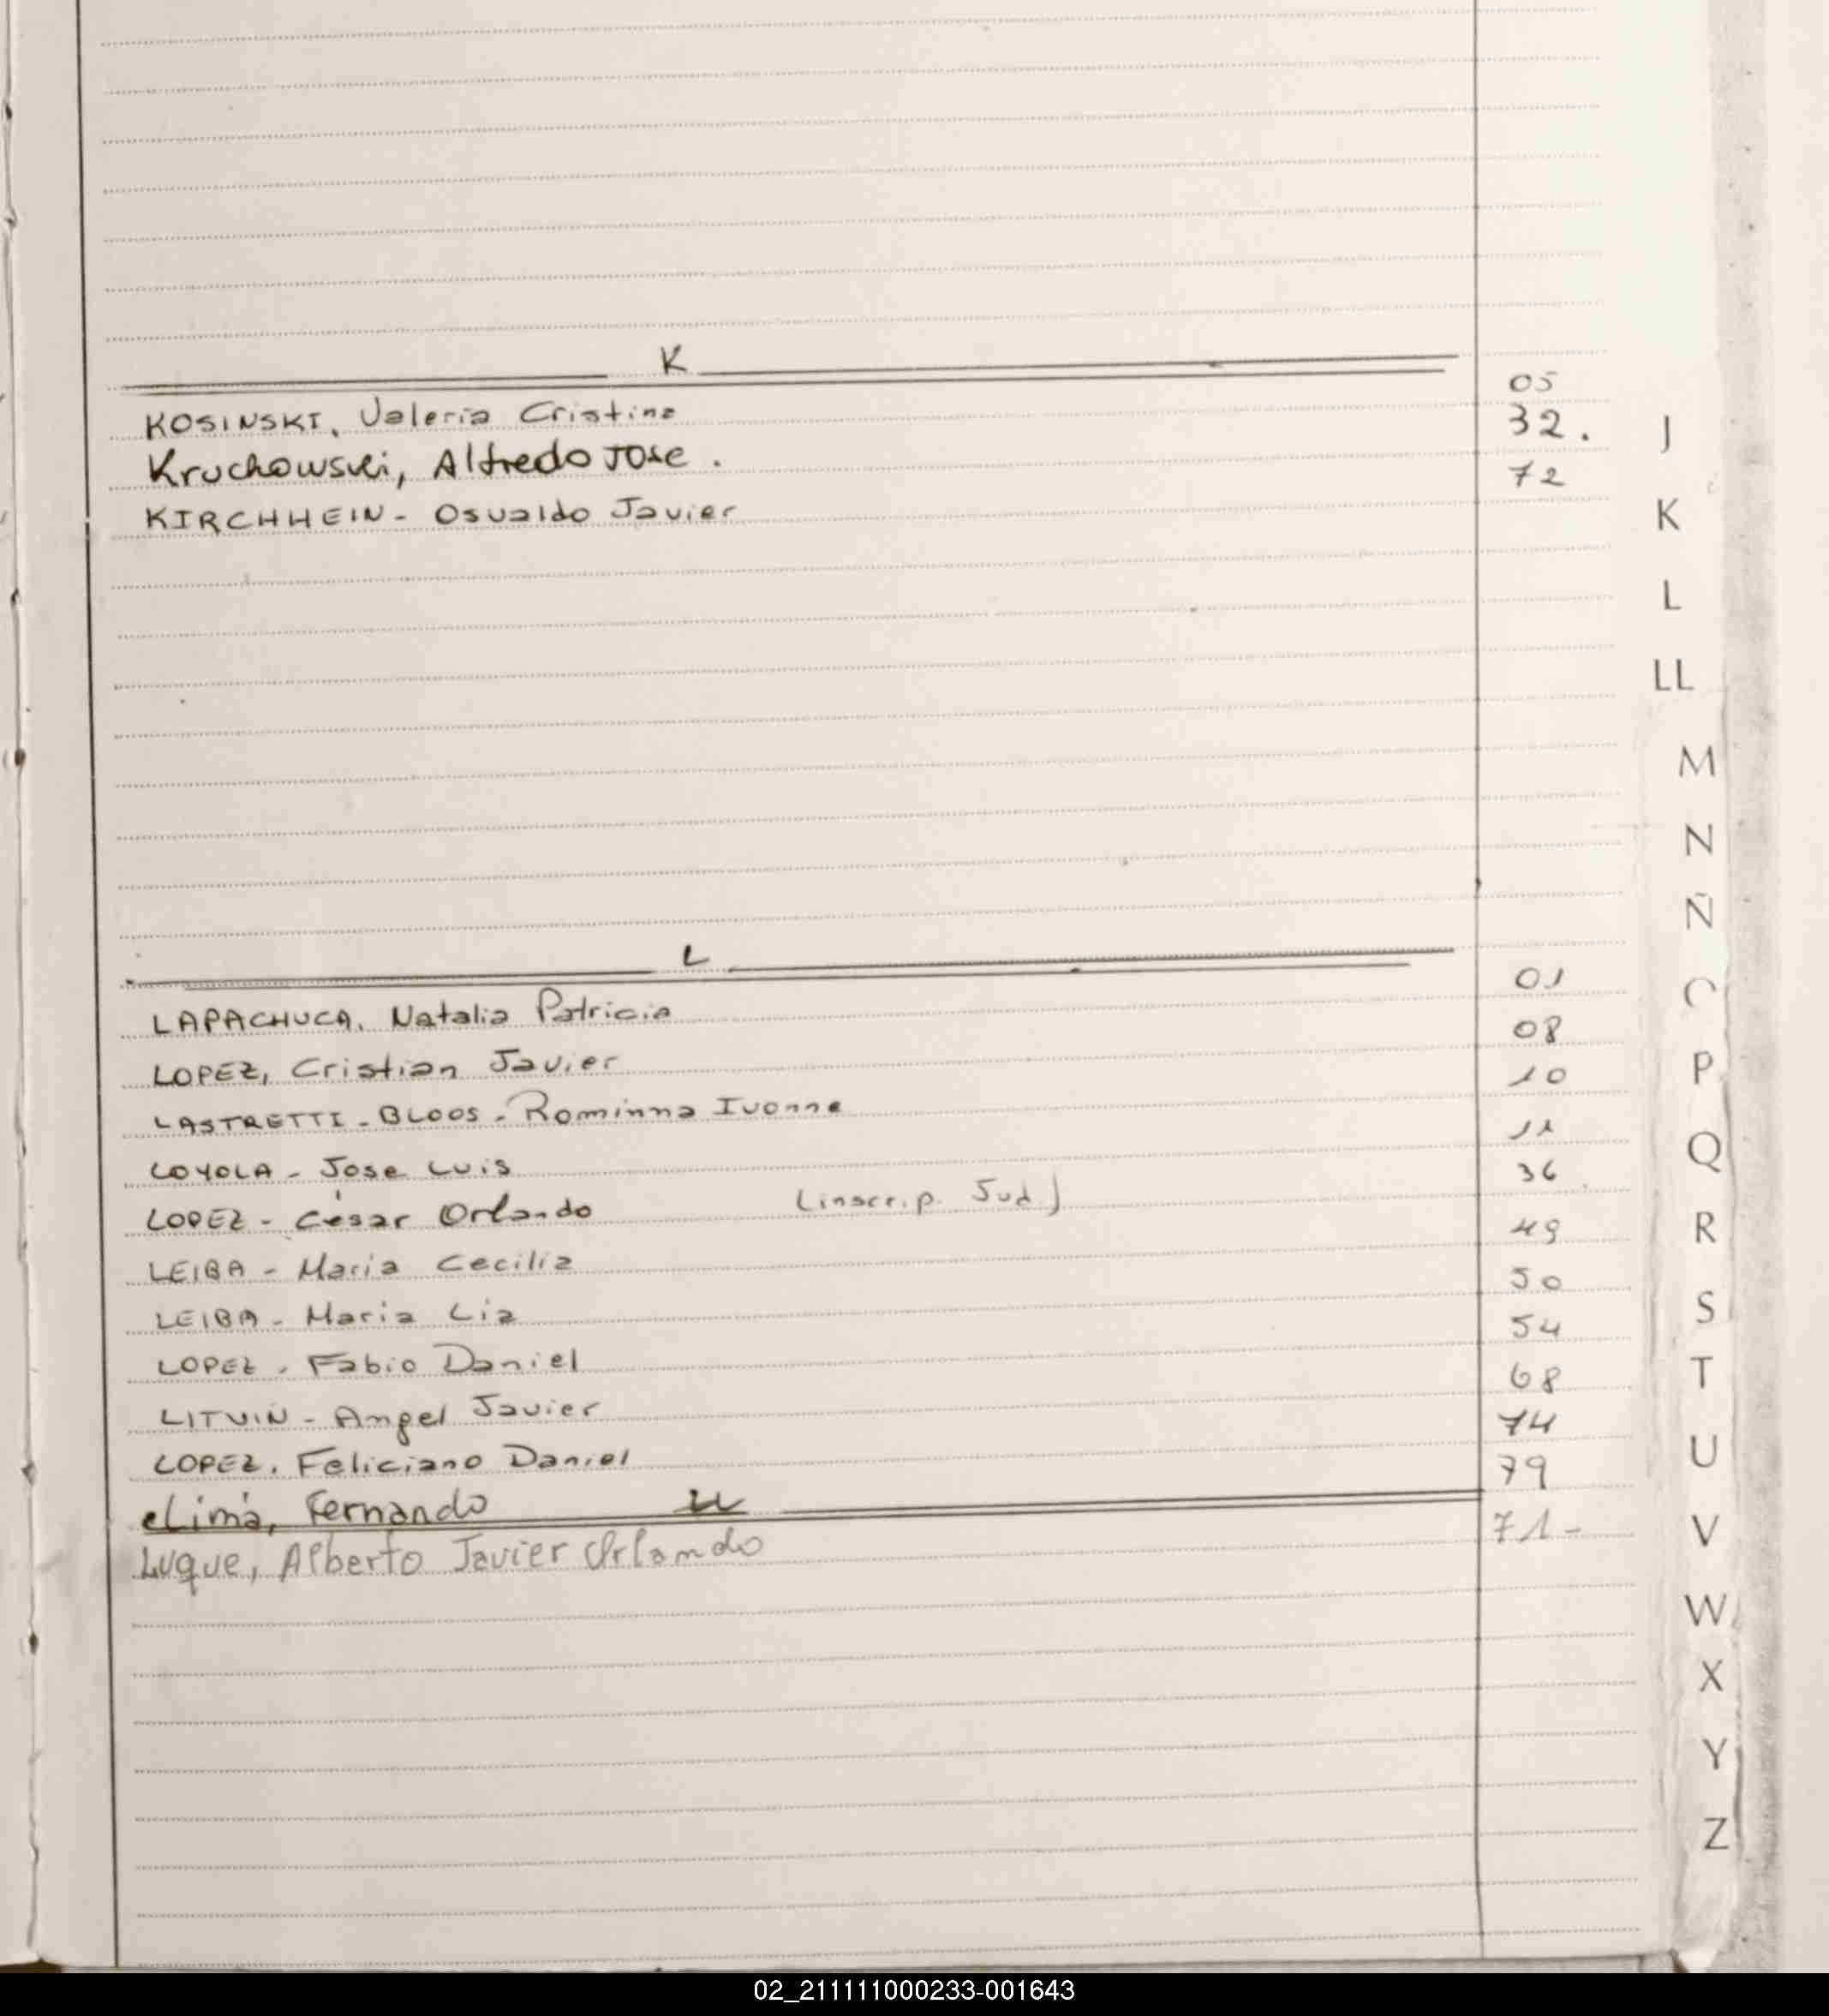 K
KOSINSKI, Valeria Cristina 05
Kruchowski, Alfredo Jose. 32.
KIRCHHEIN - Osvaldo Javier 72
L
LAPACHUCA, Natalia Patricia 01
LOPEZ, Cristian Javier 08
LASTRETTI - BLOOS - Rominna Ivonne 10
LOYOLA - Jose Luis 11
LOPEZ - César Orlando (inscrip. Jud) 36
LEIBA - Maria Cecilia 49
LEIBA - Maria Lia 50
LOPEZ - Fabio Daniel 54
LITVIN - Angel Javier 68
LOPEZ, Feliciano Daniel 74
Lima, Fernando LL 79
Luque, Alberto Javier Orlando 71-
J
K
L
LL
M
N
Ñ
O
P
Q
R
S
T
U
V
W
X
Y
Z
02_211111000233-001643